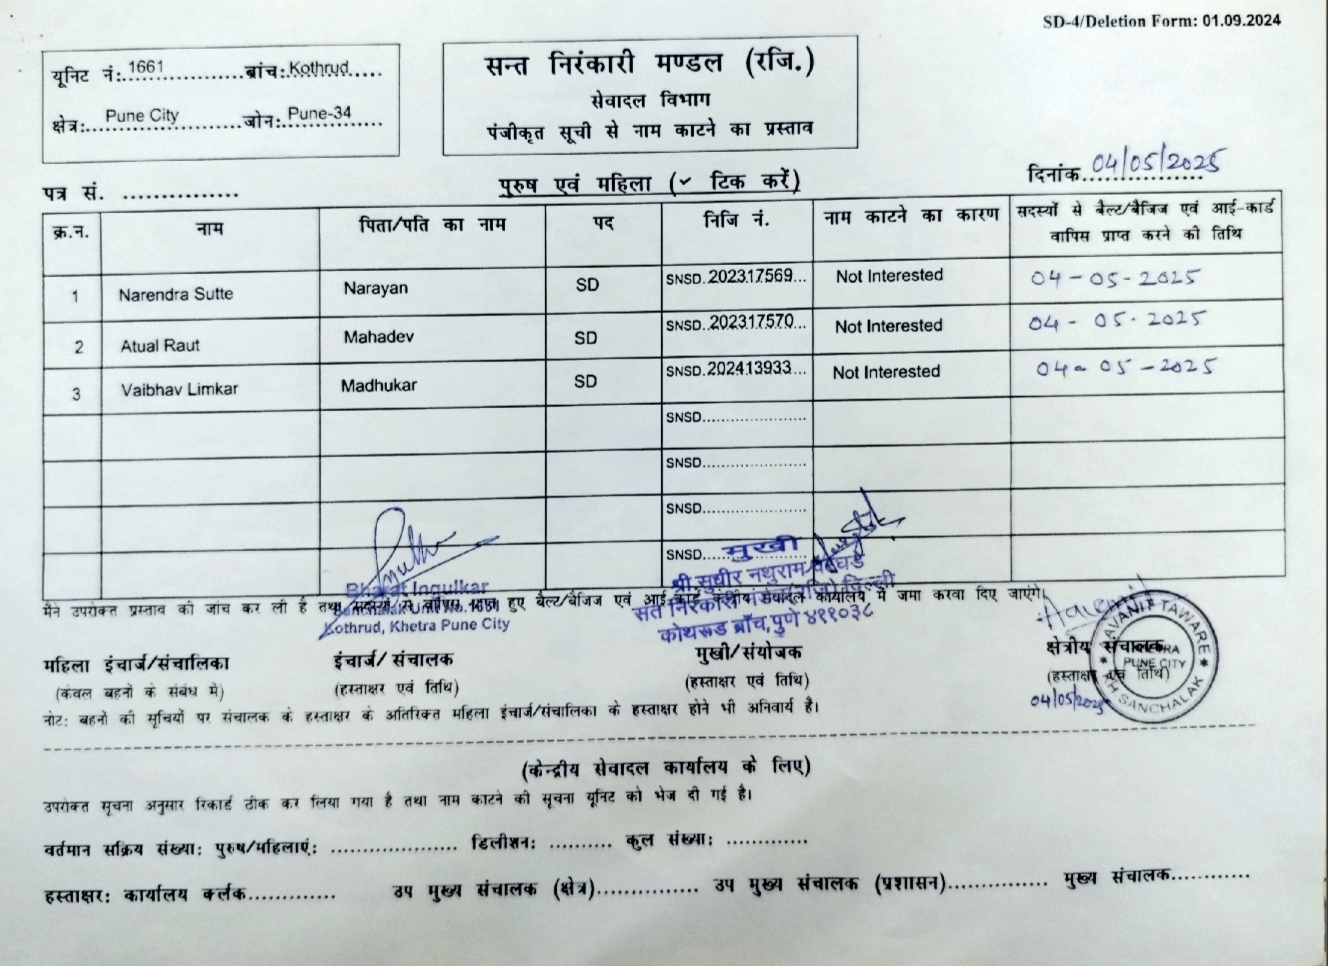 SD-4/Deletion Form: 01.09.2024
यूनिट नं:.1661.................ब्रांच:.Kothrud.....
क्षेत्र:....Pune City.............जोन:.Pune-34......
सन्त निरंकारी मण्डल (रजि.)
सेवादल विभाग
पंजीकृत सूची से नाम काटने का प्रस्ताव
दिनांक.04/05/2025
पत्र सं. ...............
पुरुष एवं महिला (✓ टिक करें)
क्र.न. नाम पिता/पति का नाम पद निजि नं. नाम काटने का कारण सदस्यों से बैल्ट/बैजिज एवं आई-कार्ड वापिस प्राप्त करने की तिथि
1 Narendra Sutte Narayan SD SNSD.202317569... Not Interested 04-05-2025
2 Atual Raut Mahadev SD SNSD.202317570... Not Interested 04-05-2025
3 Vaibhav Limkar Madhukar SD SNSD.202413933... Not Interested 04-05-2025
SNSD.......................
SNSD.......................
SNSD.......................
SNSD.......
मुखी
श्री सुधीर नथुराम
Bharat Ingulkar
मैने उपरोक्त प्रस्ताव की जांच कर ली है तथा सदस्यों से वापिस प्राप्त हुए बैल्ट/बैजिज एवं आई-कार्ड केन्द्रीय सेवादल कार्यालय में जमा करवा दिए जाएंगे।
Unit No.1661
संत निरंकारी दिल्ली
Kothrud, Khetra Pune City
कोथरूड ब्राँच, पुणे ४११०३८
महिला इंचार्ज/संचालिका इंचार्ज/संचालक मुखी/संयोजक क्षेत्रीय संचालक
(केवल बहनों के संबंध में) (हस्ताक्षर एवं तिथि) (हस्ताक्षर एवं तिथि) (हस्ताक्षर एवं तिथि)
AVANIT TAWARE
PUNE CITY
KH SANCHALAK
04/05/2025
नोट: बहनों की सूचियों पर संचालक के हस्ताक्षर के अतिरिक्त महिला इंचार्ज/संचालिका के हस्ताक्षर होने भी अनिवार्य है।
(केन्द्रीय सेवादल कार्यालय के लिए)
उपरोक्त सूचना अनुसार रिकार्ड ठीक कर लिया गया है तथा नाम काटने की सूचना यूनिट को भेज दी गई है।
वर्तमान सक्रिय संख्या: पुरुष/महिलाएं: .................... डिलीशन: .......... कुल संख्या: .............
हस्ताक्षर: कार्यालय क्लंक.............. उप मुख्य संचालक (क्षेत्र)................ उप मुख्य संचालक (प्रशासन)................ मुख्य संचालक.............